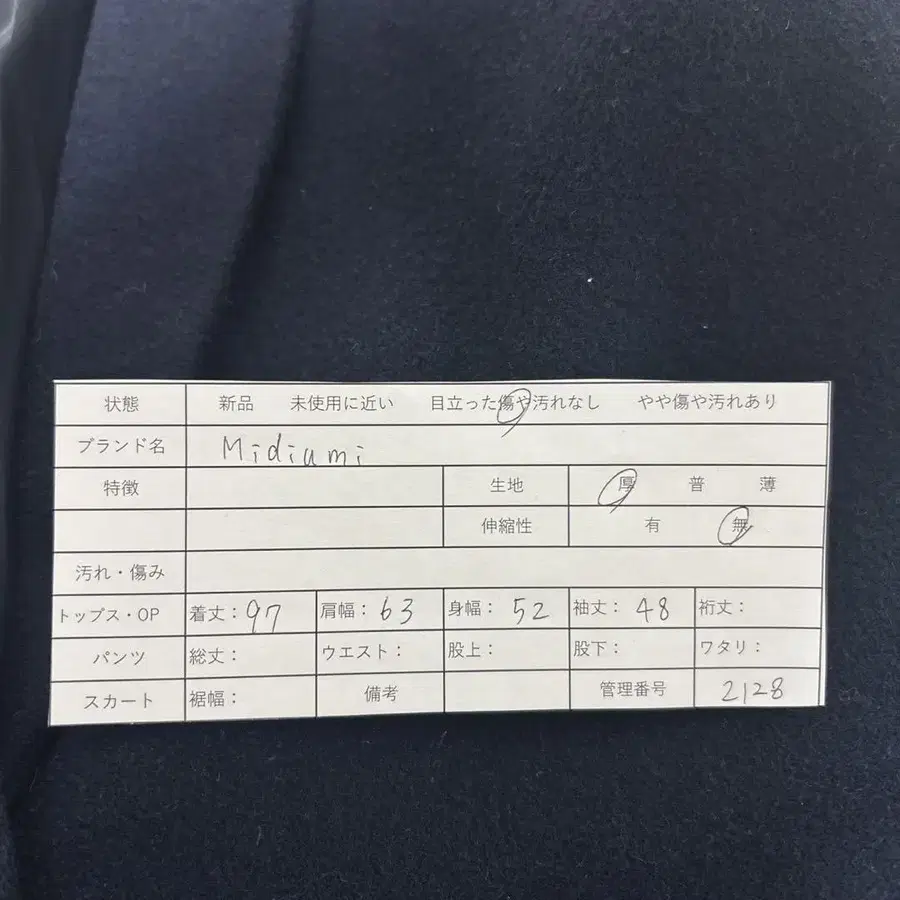 状態 新品 未使用に近い 目立った傷や汚れなし やや傷や汚れあり
ブランド名 Midiumi
特徴 生地 厚 普 薄
伸縮性 有 無
汚れ・傷み
トップス・OP 着丈：97 肩幅：63 身幅：52 袖丈：48 裄丈：
パンツ 総丈： ウエスト： 股上： 股下： ワタリ：
スカート 裾幅： 備考 管理番号 2128